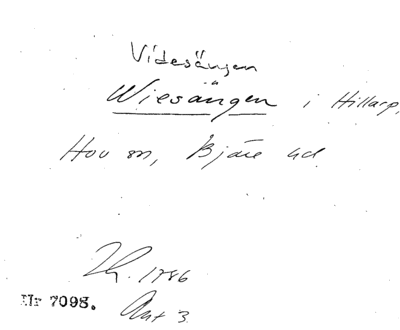 Videsängen
Wiesängen i Hillarp,
Hov sn, Bjäre hd
Lh. 1786
Nr 7098. Akt 3